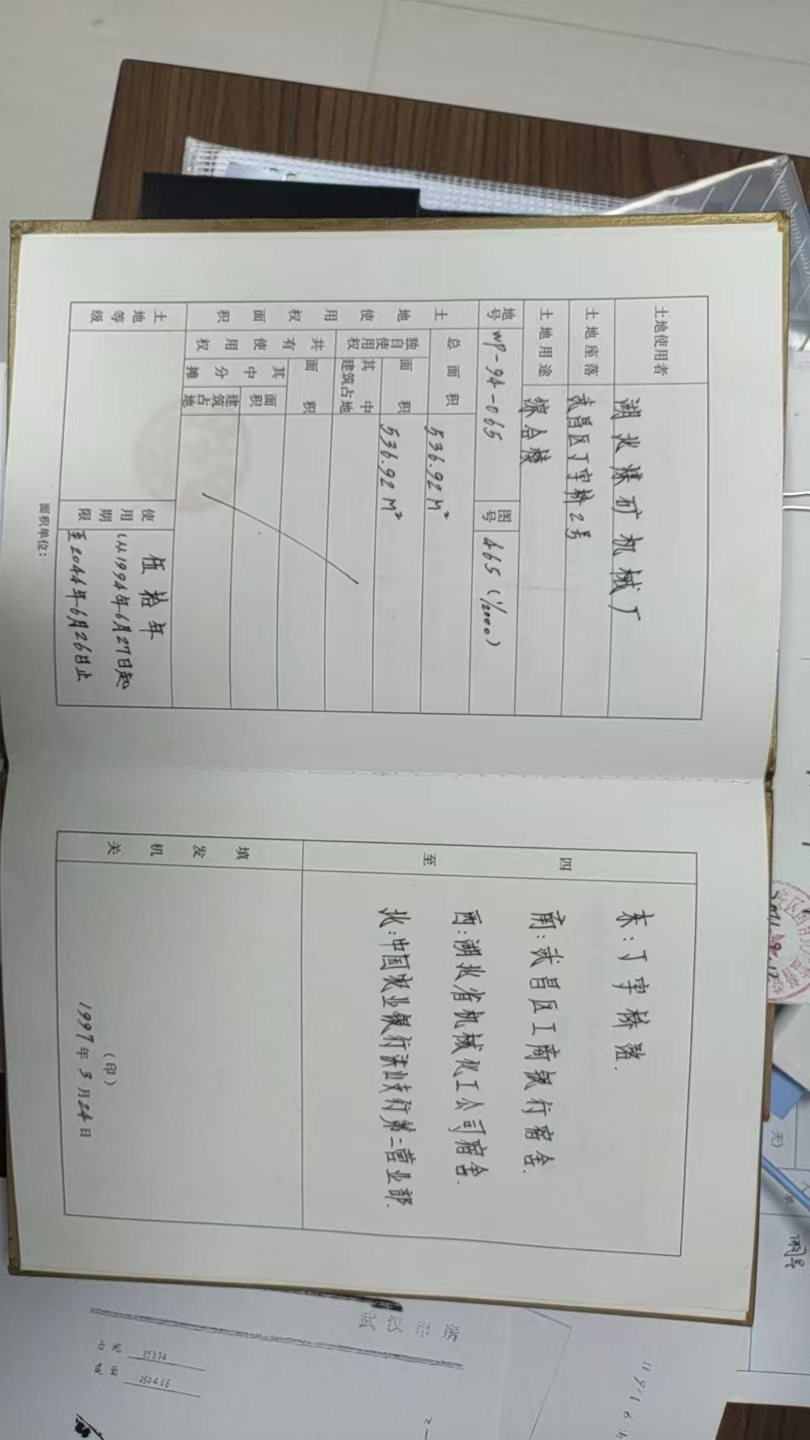 土地使用者 湖北煤矿机械厂
土地座落 武昌区丁字桥2号
土地用途 综合楼
地号 WP-94-065 图号 465(1/2000)
土地使用权面积
总面积 536.92 M²
独自使用权 面积 536.92 M²
其中建筑占地
共有使用权 面积
其中分摊 面积
建筑占地
土地等级
使用期限 伍拾年
(从1994年6月27日起
至2044年6月26日止
面积单位:
四至
东:丁字桥路.
南:武昌区工商银行宿舍.
西:湖北省机械化工公司宿舍.
北:中国农业银行洪山支行第二营业部.
填发机关
(印)
1997年3月24日
武汉市房